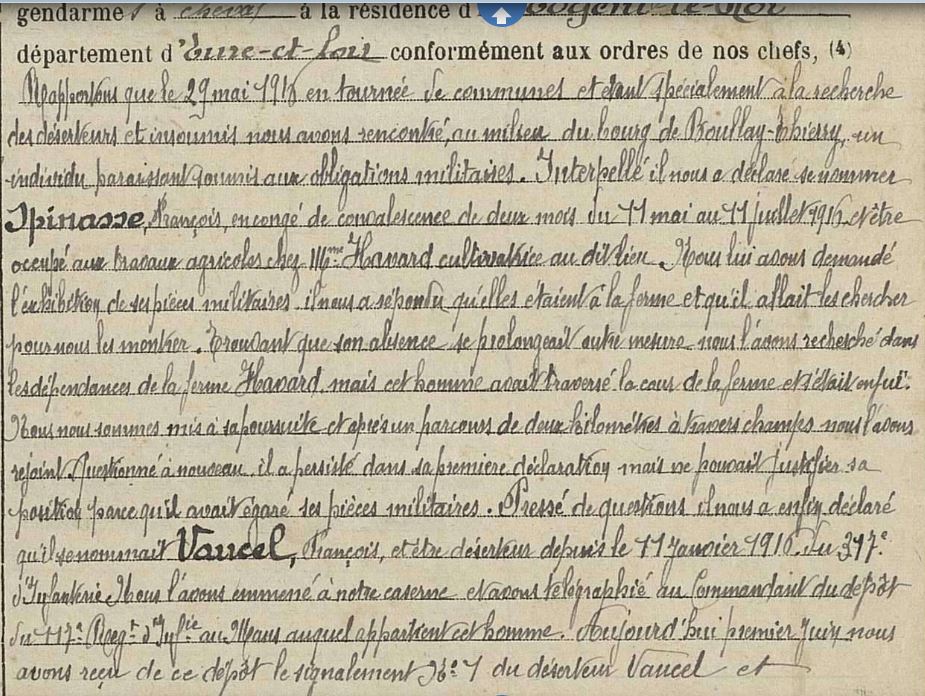 gendarmes à cheval à la résidence d
département d'Eure-et-Loir conformément aux ordres de nos chefs, (4)
Rapportons que le 29 mai 1916 en tournée de communes et étant spécialement à la recherche
des déserteurs et insoumis nous avons rencontré, au milieu du bourg de Boullay-Thierry, un
individu paraissant soumis aux obligations militaires. Interpellé il nous a déclaré se nommer
Spinasse, François, en congé de convalescence de deux mois du 11 mai au 11 juillet 1916 et être
occupé aux travaux agricoles chez Mme Havard cultivatrice au dit lieu. Nous lui avons demandé
l'exhibition de ses pièces militaires il nous a répondu qu'elles étaient à la ferme et qu'il allait les chercher
pour nous les montrer. Trouvant que son absence se prolongeait outre mesure nous l'avons recherché dans
les dépendances de la ferme Havard, mais cet homme avait traversé la cour de la ferme et s'était enfui.
Nous nous sommes mis à sa poursuite et après un parcours de deux kilomètres à travers champs nous l'avons
rejoint. Questionné à nouveau il a persisté dans sa première déclaration mais ne pouvait justifier sa
position parce qu'il avait égaré ses pièces militaires. Pressé de questions il nous a enfin déclaré
qu'il se nommait Vaucel, François, et être déserteur depuis le 11 janvier 1916 du 317e
d'Infanterie. Nous l'avons emmené à notre caserne et avons télégraphié au Commandant du dépôt
du 117e Regt d'Infie au Mans auquel appartient cet homme. Aujourd'hui premier Juin nous
avons reçu de ce dépôt le signalement No 1 du déserteur Vaucel et